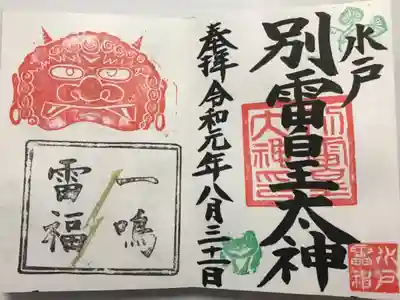 水戸
別雷皇太神
奉拝令和元年八月三十一日
一鳴
雷福
別雷皇
太神印
水戸
雷神